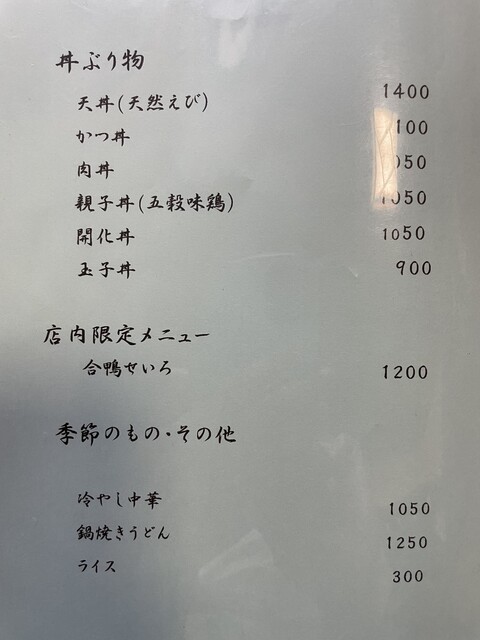 丼ぶり物
天丼(天然えび) 1400
かつ丼 100
肉丼 050
親子丼(五穀味鶏) 1050
開化丼 1050
玉子丼 900
店内限定メニュー
合鴨せいろ 1200
季節のもの・その他
冷やし中華 1050
鍋焼きうどん 1250
ライス 300